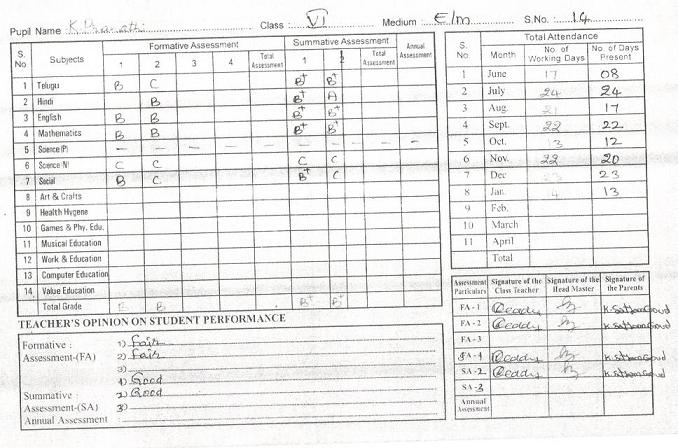 Pupil Name : K. Pranathi Class : VI Medium : E/m S.No. : 14
S. No. Subjects Formative Assessment Summative Assessment Annual Assessment
1 2 3 4 Total Assessment 1 2 Total Assessment
1 Telugu B C B+ B+
2 Hindi B B+ A
3 English B B B+ B+
4 Mathematics B B B+ B+
5 Science (P) – – – – – – – – –
6 Science (N) C C C C
7 Social B C B+ C
8 Art & Crafts
9 Health Hygene
10 Games & Phy. Edu.
11 Musical Education
12 Work & Education
13 Computer Education
14 Value Education
Total Grade B B+ B+
S. No. Month Total Attendance
No. of Working Days No. of Days Present
1 June 17 08
2 July 24 24
3 Aug. 21 17
4 Sept. 22 22
5 Oct. 13 12
6 Nov. 22 20
7 Dec 23
8 Jan. 13
9 Feb.
10 March
11 April
Total
Assessment Particulars Signature of the Class Teacher Signature of the Head Master Signature of the Parents
FA - 1
FA - 2
FA - 3
SA - 1
SA - 2
SA - 3
Annual Assessment
TEACHER'S OPINION ON STUDENT PERFORMANCE
Formative : 1) Fair
Assessment-(FA) 2) Fair
3)
1) Good
Summative : 2) Good
Assessment-(SA) 3)
Annual Assessment :